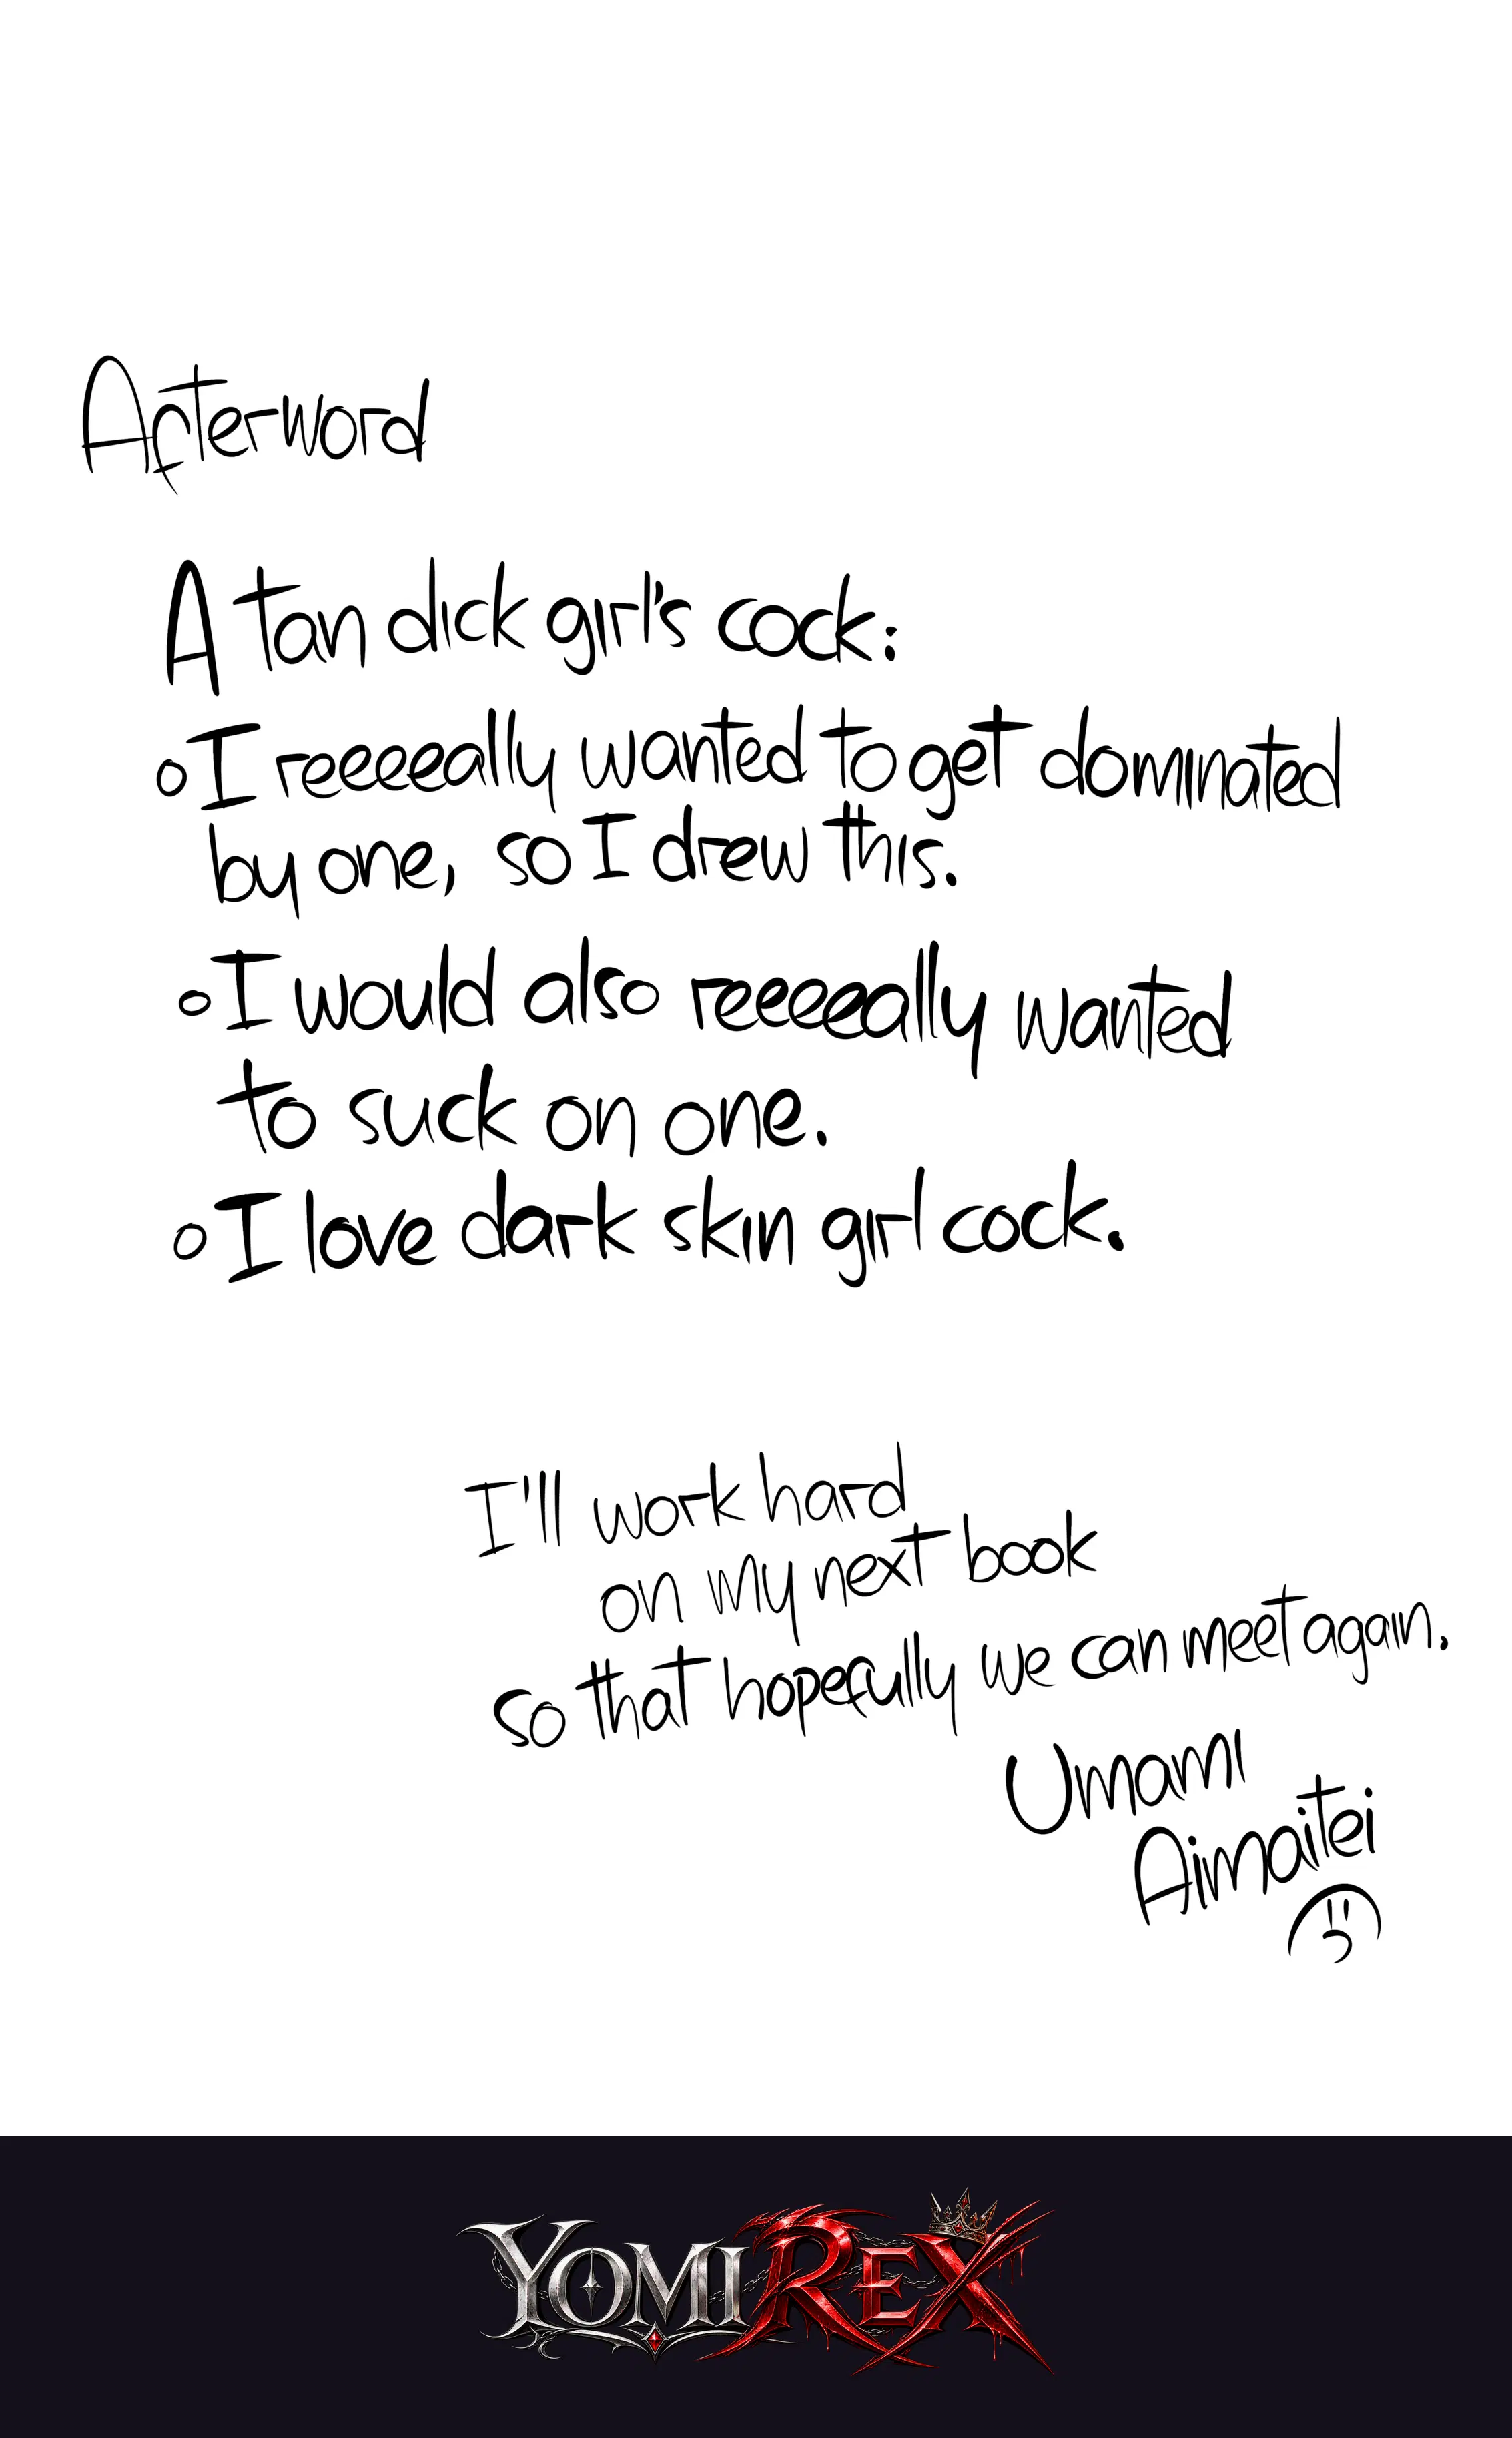 Afterword
A tan dick girl's cock:
I reeeeally wanted to get dominated
by one, so I drew this.
I would also reeeeally wanted
to suck on one.
I love dark skin girl cock.
I'll work hard
on my next book
so that hopefully we can meet again.
Umami
Aimaitei
YOMI REX